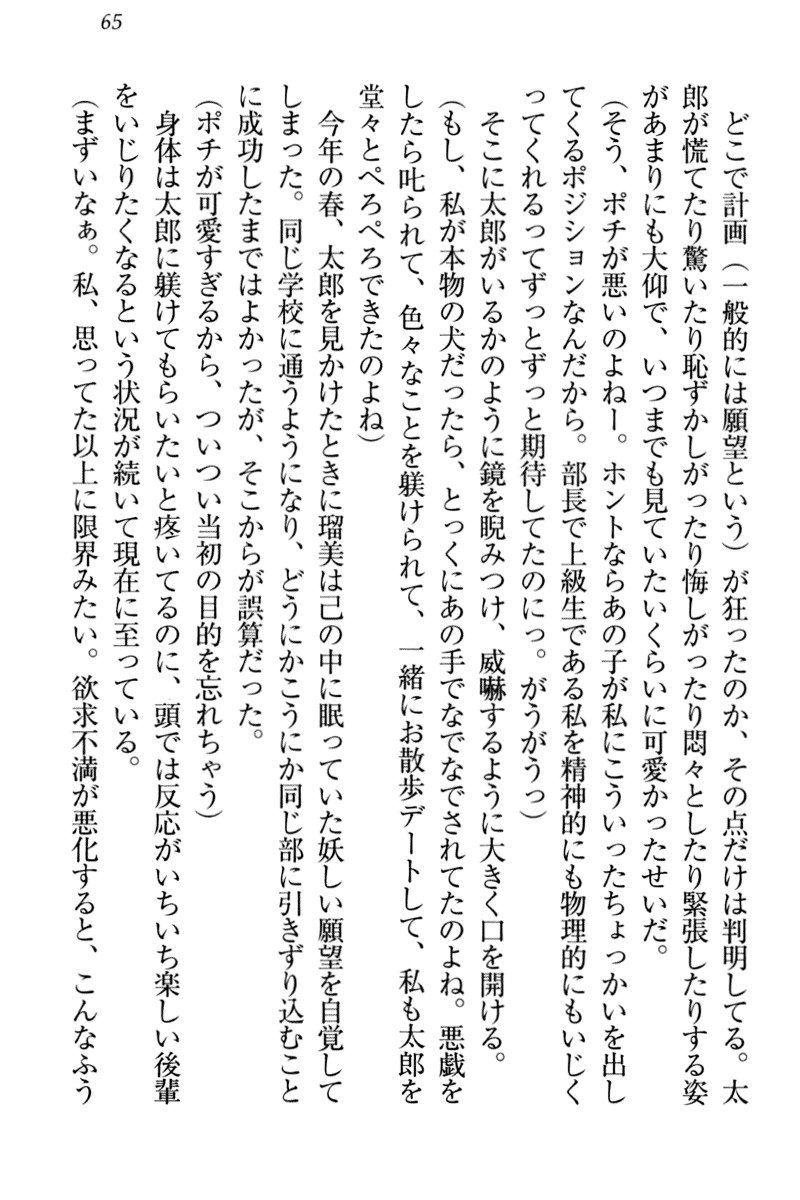 65
どこで計画（一般的には願望という）が狂ったのか、その点だけは判明してる。太
郎が慌てたり驚いたり恥ずかしがったり悔しがったり悶々としたり緊張したりする姿
があまりにも大仰で、いつまでも見ていたいくらいに可愛かったせいだ。
（そう、ポチが悪いのよねー。ホントならあの子が私にこういったちょっかいを出し
てくるポジションなんだから。部長で上級生である私を精神的にも物理的にもいじく
ってくれるってずっとずっと期待してたのにっ。がうがうっ）
そこに太郎がいるかのように鏡を睨みつけ、威嚇するように大きく口を開ける。
（もし、私が本物の犬だったら、とっくにあの手でなでなでされてたのよね。悪戯を
したら叱られて、色々なことを躾けられて、一緒にお散歩デートして、私も太郎を
堂々とぺろぺろできたのよね）
今年の春、太郎を見かけたときに瑠美は己の中に眠っていた妖しい願望を自覚して
しまった。同じ学校に通うようになり、どうにかこうにか同じ部に引きずり込むこと
に成功したまではよかったが、そこからが誤算だった。
（ポチが可愛すぎるから、ついつい当初の目的を忘れちゃう）
身体は太郎に躾けてもらいたいと疼いてるのに、頭では反応がいちいち楽しい後輩
をいじりたくなるという状況が続いて現在に至っている。
（まずいなぁ。私、思ってた以上に限界みたい。欲求不満が悪化すると、こんなふう